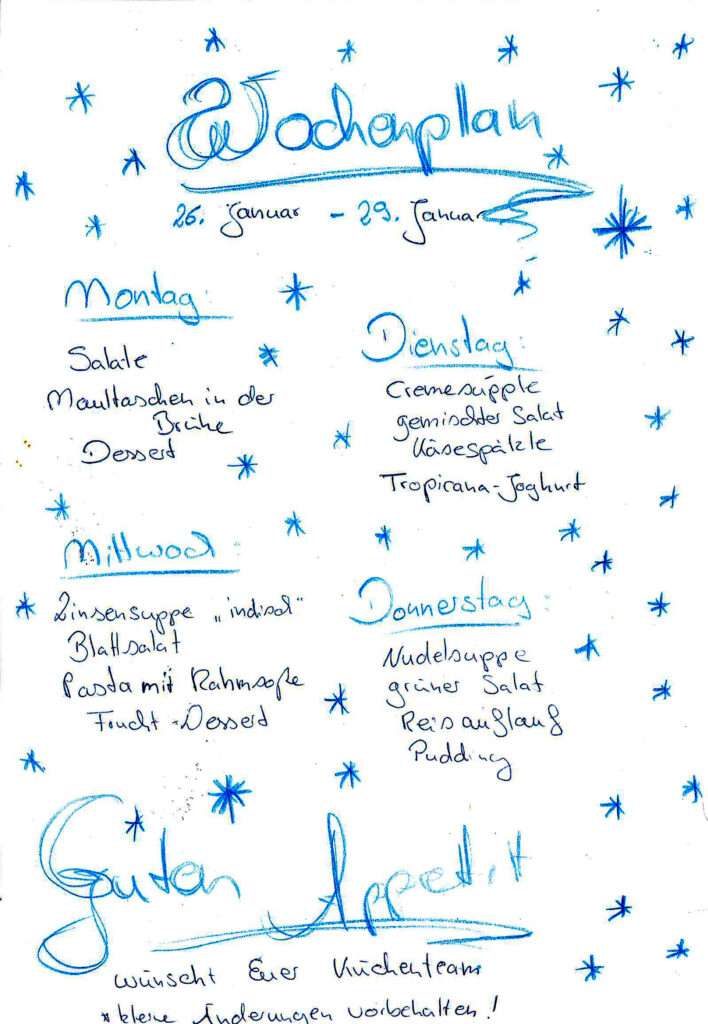 Wochenplan
26. Januar - 29. Januar
Montag:
Salate
Maultaschen in der
Brühe
Dessert
Dienstag:
Cremesuppe
gemischter Salat
Käsespätzle
Tropicana-Joghurt
Mittwoch:
Linsensuppe „indisch“
Blattsalat
Pasta mit Rahmsoße
Frucht-Dessert
Donnerstag:
Nudelsuppe
grüner Salat
Reisauflauf
Pudding
Guten Appetit
wünscht Euer Küchenteam
*kleine Änderungen vorbehalten!